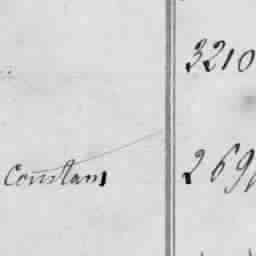 3210
Constans 269